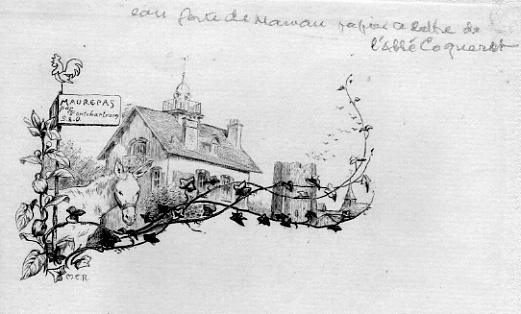 eau forte de Maman papier a lettre de
l'Abbé Coqueret
MAUREPAS
par
Pontchartrain
S.&O.
MCR